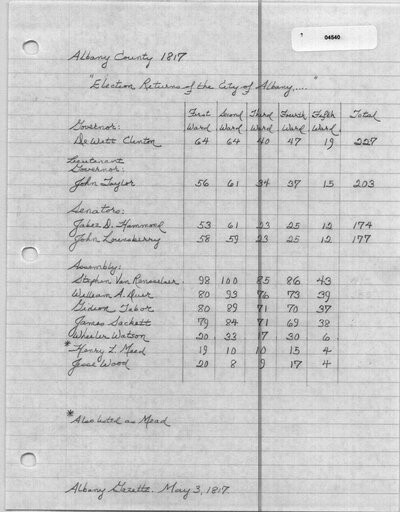 04540
Albany County 1817
"Election Returns of the City of Albany,...."
First Second Third Fourth Fifth Total
Governor: Ward Ward Ward Ward Ward
De Witt Clinton 64 64 40 47 19 227
Lieutenant
Governor:
John Taylor 56 61 34 37 15 203
Senators:
Jabez D. Hammond 53 61 23 25 12 174
John Lounsberry 58 59 23 25 12 177
Assembly:
Stephen Van Rensselaer 98 100 85 86 43
William A. Duer 80 93 76 73 39
Gideon Tabor 80 89 71 70 37
James Sackett 79 84 71 69 38
Wheeler Watson 20 33 17 30 6
* Henry L. Meed 19 10 10 15 4
Jesse Wood 20 8 9 17 4
* Also listed as Mead
Albany Gazette. May 3, 1817.